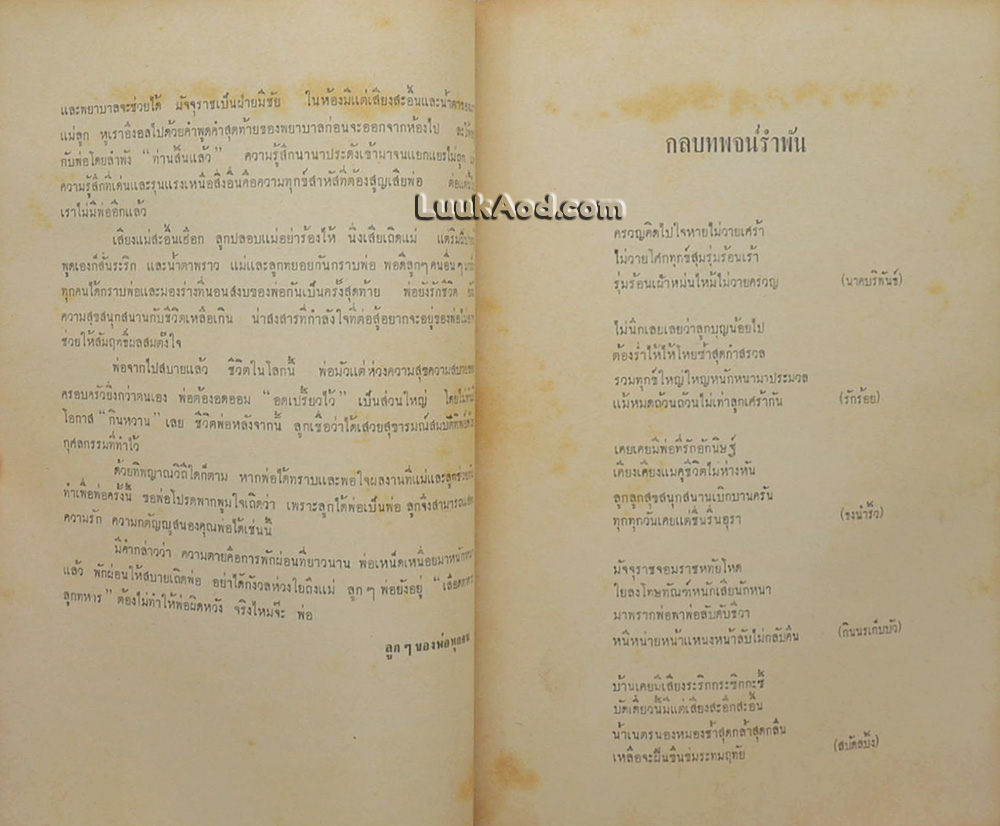 และพยาบาลจะช่วยได้ มัจจุราชเป็นฝ่ายมีชัย ในห้องมีแต่เสียงสะอื้นและน้ำตาของ
แม่ลูก หูเราอึงอลไปด้วยคำพูดคำสุดท้ายของพยาบาลก่อนจะออกจากห้องไป
กับพ่อโดยลำพัง “ท่านสิ้นแล้ว” ความรู้สึกนานาประดังเข้ามาจนแยกแยะไม่ถูก
ความรู้สึกที่เด่นและรุนแรงเหนือสิ่งอื่นคือความทุกข์สาหัสที่ต้องสูญเสียพ่อ
เราไม่มีพ่ออีกแล้ว
เสียงแม่สะอื้นเฮือก ลูกปลอบแม่อย่าร้องไห้ นิ่งเสียเถิดแม่
พูดเองก็สั่นระริก และน้ำตาพราว แม่และลูกทยอยกันกราบพ่อ พอดีลูกๆ คนอื่นๆ
ทุกคนได้กราบพ่อและมองร่างที่นอนสงบของพ่อกันเป็นครั้งสุดท้าย พ่อยังรักชีวิต
ความสุขสนุกสนานกับชีวิตเหลือเกิน น่าสงสารที่กำลังใจที่ต่อสู้อยากจะอยู่ของพ่อ
ช่วยให้สัมฤทธิ์ผลสมดังใจ
พ่อจากไปสบายแล้ว ชีวิตในโลกนี้ พ่อมัวแต่ห่วงความสุขความสบายของ
ครอบครัวยิ่งกว่าตนเอง พ่อต้องอดออม “อดเปรี้ยวไว้” เป็นส่วนใหญ่
โอกาส “กินหวาน” เลย ชีวิตพ่อหลังจากนี้ ลูกเชื่อว่าได้เสวยสุขารมณ์สมบัติทิพย์
กุศลกรรมที่ทำไว้
ด้วยทิพญาณวิถีใดก็ตาม หากพ่อได้ทราบและพอใจผลงานที่แม่และลูก
ทำเพื่อพ่อครั้งนี้ ขอพ่อโปรดพากพูมใจเถิดว่า เพราะลูกได้พ่อเป็นพ่อ ลูกจึงสามารถ
ความรัก ความกตัญญูสนองคุณพ่อได้เช่นนี้
มีคำกล่าวว่า ความตายคือการพักผ่อนที่ยาวนาน พ่อเหน็ดเหนื่อยมาหนัก
แล้ว พักผ่อนให้สบายเถิดพ่อ อย่าได้กังวลห่วงใยถึงแม่ ลูก ๆ พ่อยังอยู่ “เลือดทหาร
ลูกทหาร” ต้องไม่ทำให้พ่อผิดหวัง จริงไหมจ๊ะ พ่อ
ลูก ๆ ของพ่อทุกคน
LuukAod.com
กลบทพจน์รำพัน
ครวญคิดไปใจหายไม่วายเศร้า
ไม่วายโศกทุกข์สุมรุ่มร้อนเร้า
รุ่มร้อนเผ้าหม่นไหม้ไม่วายครวญ (นาคบริพันธ์)
ไม่นึกเลยเลยว่าลูกบุญน้อยไป
ต้องร่ำไห้ไห้โหยซ้ำสุดกำสรวล
รวมทุกข์ใหญ่ใหญ่หนักหนามาประมวล
แม้หมดถ้วนถ้วนไม่เท่าลูกเศร้ากัน (รักร้อย)
เคยเคยมีพ่อที่รักอักนิษฐ์
เคียงเคียงแม่คู่ชีวิตไม่ห่างหัน
ลูกลูกสุขสนุกสนานเบิกบานครัน
ทุกทุกวันเคยแต่ชื่นรื่นอุรา (ธงนำริ้ว)
มัจจุราชจอมราชหทัยโหด
ใยลงโทษทัณฑ์หนักเสียนักหนา
มาพรากพ่อพาพ่อลับดับชีวา
หนีหน่ายหน้าแหนงหน้าลับไม่กลับคืน (กินนรเก็บบัว)
บ้านเคยมีเสียงระริกกระซิกกะซี้
บัดเดี๋ยวนี้มีแต่เสียงสะอึกสะอื้น
น้ำเนตรนองหมองช้ำสุดกล้ำสุดกลืน
เหลือจะฝืนขืนข่มระทมฤทัย (สบัดสบิ้ง)